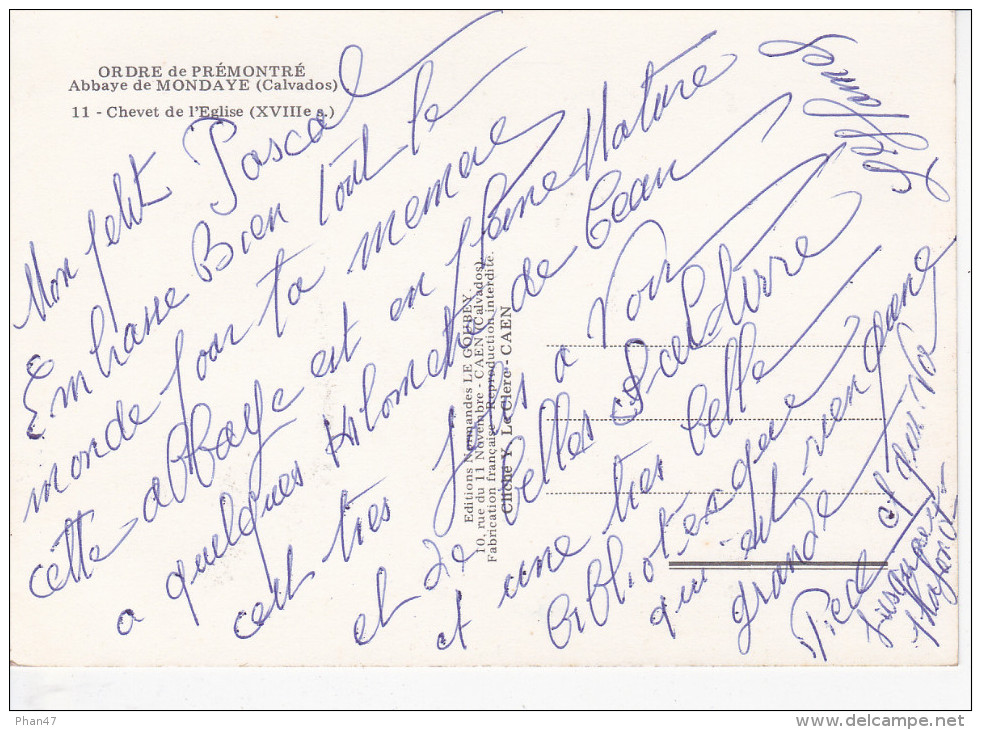 ORDRE de PRÉMONTRÉ
Abbaye de MONDAYE (Calvados)
11 - Chevet de l'Eglise (XVIIIe s.)
Mon petit Pascal
Embrasse Bien Tout le
monde pour ta mémère
cette abbaye est en pleine Nature
a quelques Kilomètres de Caen
cest très Jolis a Voir
et de belles
et une tres belle
bibliotesque
qui est rien
grande
Piece et qui va
Jusquau
plafond
Editions Normandes LE GOUBEY
10, rue du 11 Novembre - CAEN (Calvados)
Fabrication française - Reproduction interdite.
Cliché Y. Le Clerc - CAEN
Phan47
delcampe.net